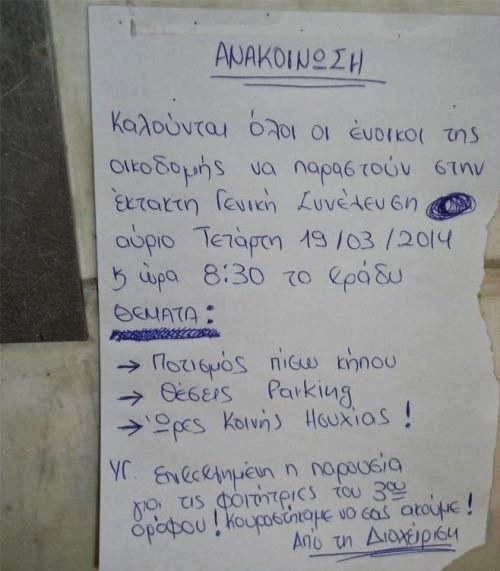 ΑΝΑΚΟΙΝΩΣΗ
Καλούνται όλοι οι ένοικοι της
οικοδομής να παραστούν στην
έκτακτη Γενική Συνέλευση
αύριο Τετάρτη 19/03/2014
κ ώρα 8:30 το βράδυ
ΘΕΜΑΤΑ:
→ Ποτισμός πίσω κήπου
→ Θέσεις Parking
→ Ώρες Κοινής Ησυχίας!
ΥΓ Επιβεβλημένη η παρουσία
για τις φοιτήτριες του 3ου
ορόφου! Κουραστήκαμε να σας ακούμε!
Από τη Διαχείριση